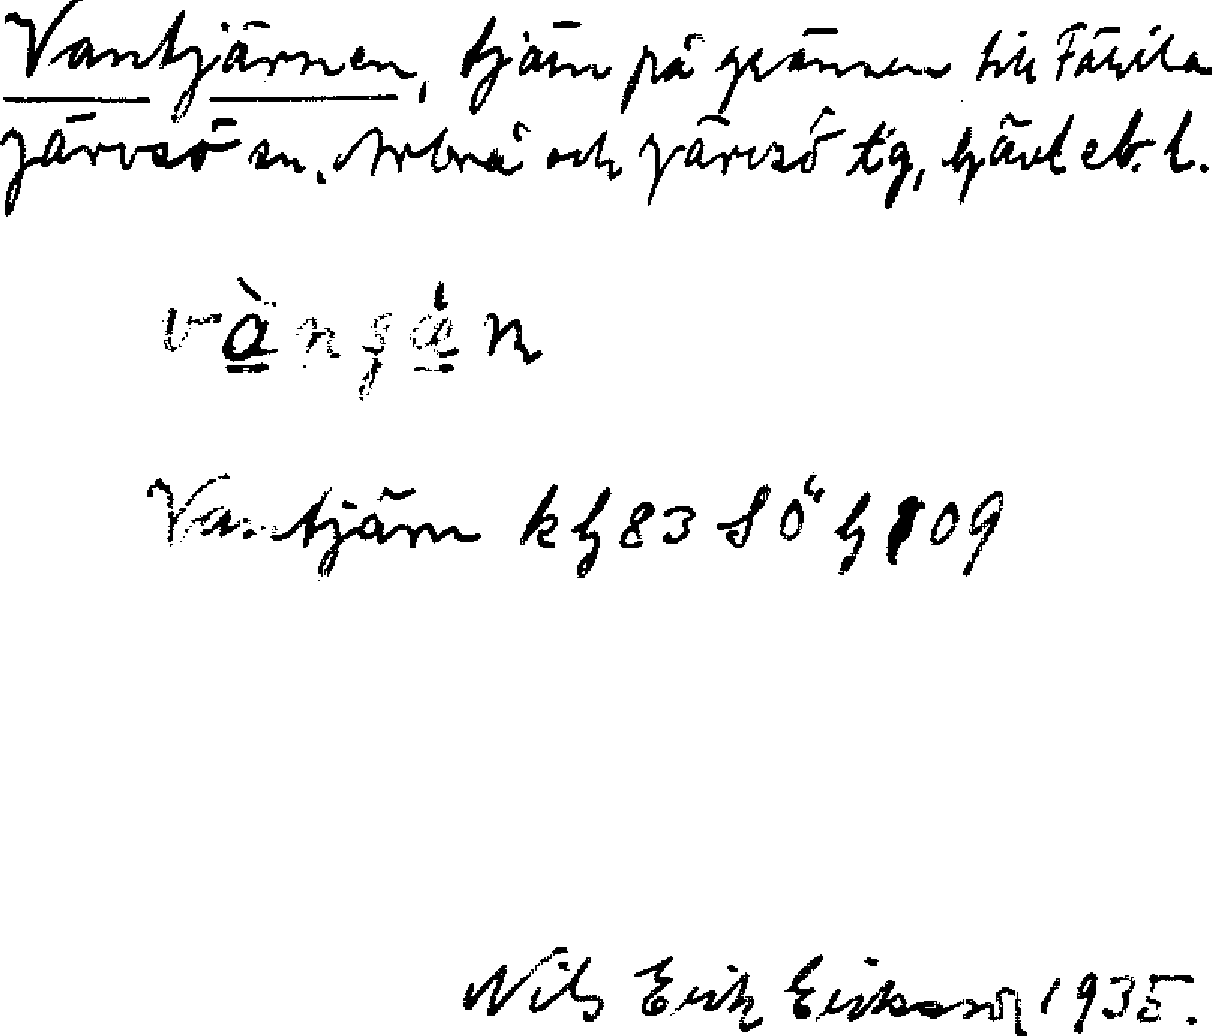 Vantjärnen, tjärn på gränsen till Färila
Järvsö sn. Arbrå och Järvsö tg, Gävleb. l.
Vantjärn k h 83 S Ö h 109
Nils Erik Eriksson 1935.